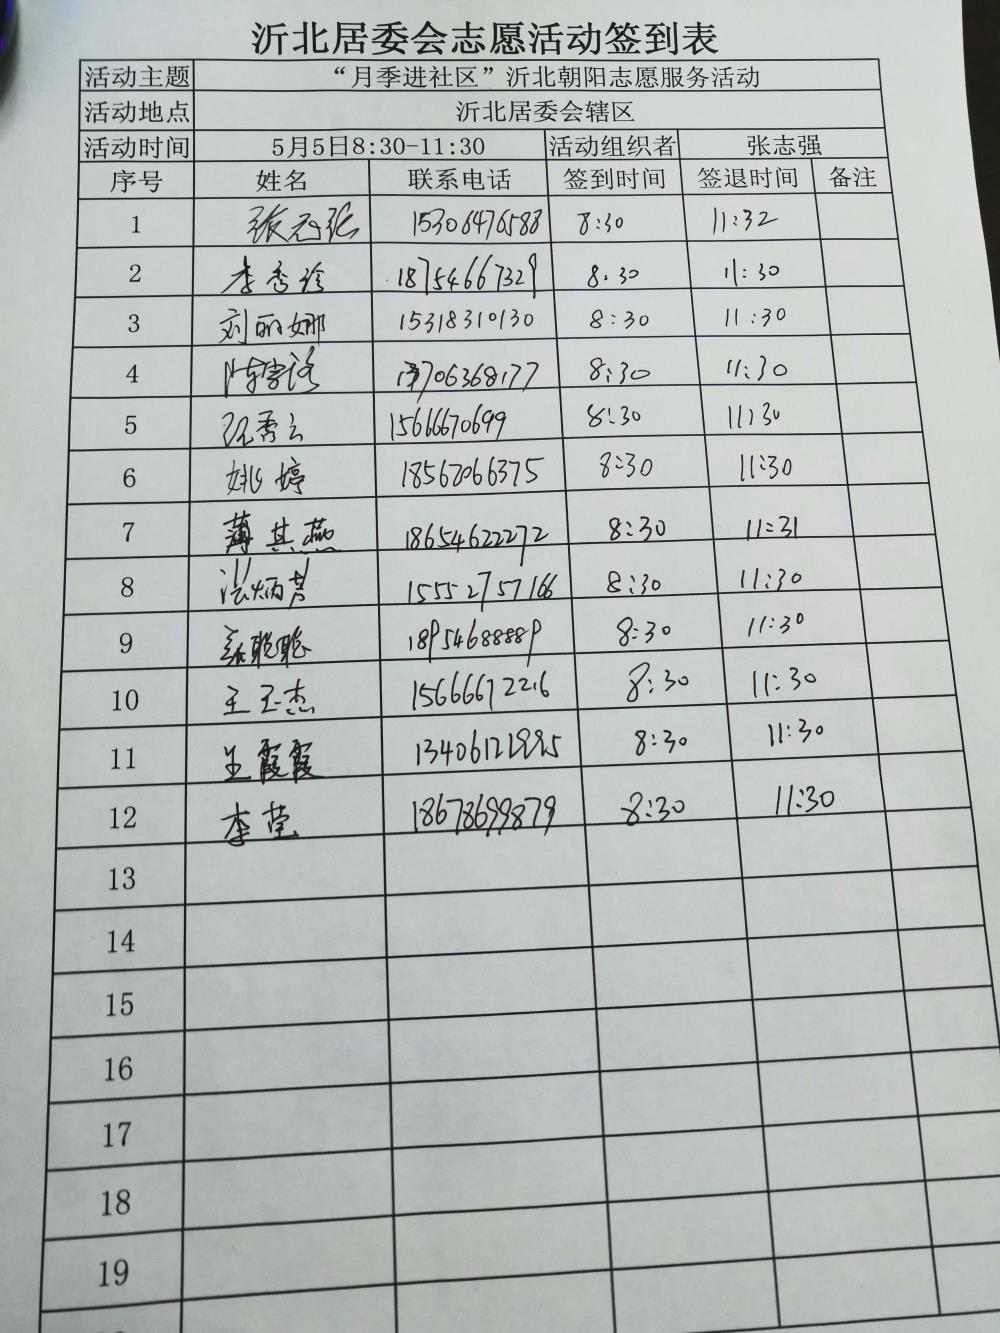 沂北居委会志愿活动签到表
活动主题 “月季进社区”沂北朝阳志愿服务活动
活动地点 沂北居委会辖区
活动时间 5月5日8:30-11:30 活动组织者 张志强
序号 姓名 联系电话 签到时间 签退时间 备注
1 张志强 15306476588 8:30 11:32
2 李秀珍 18754667329 8:30 11:30
3 刘丽娜 15318310130 8:30 11:30
4 8:30 11:30
5 15666670699 8:30 11:30
6 姚婷 18562066375 8:30 11:30
7 薄其燕 18654622272 8:30 11:31
8 15552757166 8:30 11:30
9 聪聪 18954688889 8:30 11:30
10 王玉杰 15666672216 8:30 11:30
11 王霞霞 8:30 11:30
12 李莹 18678699879 8:30 11:30
13
14
15
16
17
18
19